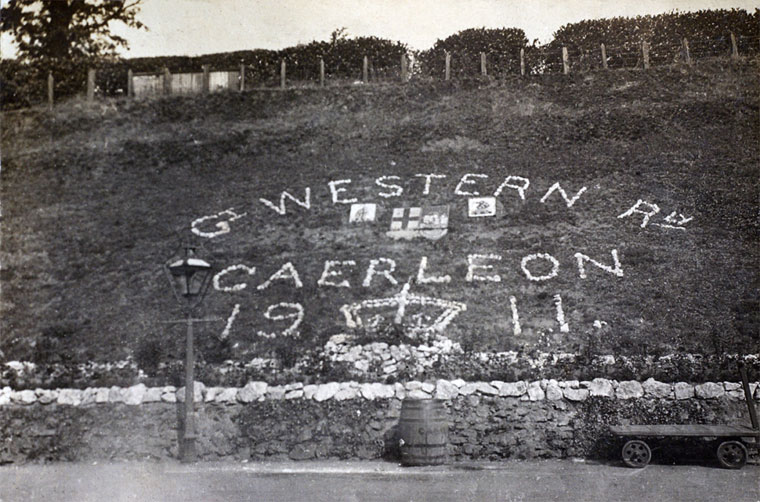 G WESTERN Ry
CAERLEON
1911.